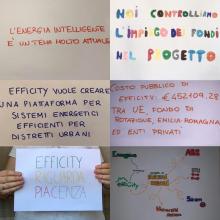 L'ENERGIA INTELLIGENTE
È UN TEMA MOLTO ATTUALE
NOI CONTROLLIAMO
L'IMPIEGO DEI FONDI
NEL PROGETTO
EFFICITY VUOLE CREARE
UNA PIATAFORMA PER
SISTEMI ENERGETICI
EFFICIENTI PER
DISTRETTI URBANI
COSTO PUBBLICO DI
EFFICITY: € 452109,28
TRA UE, FONDO DI
ROTAZIONE, EMILIA-ROMAGNA
ED ENTI PRIVATI
EFFICITY
RIGUARDA
PIACENZA